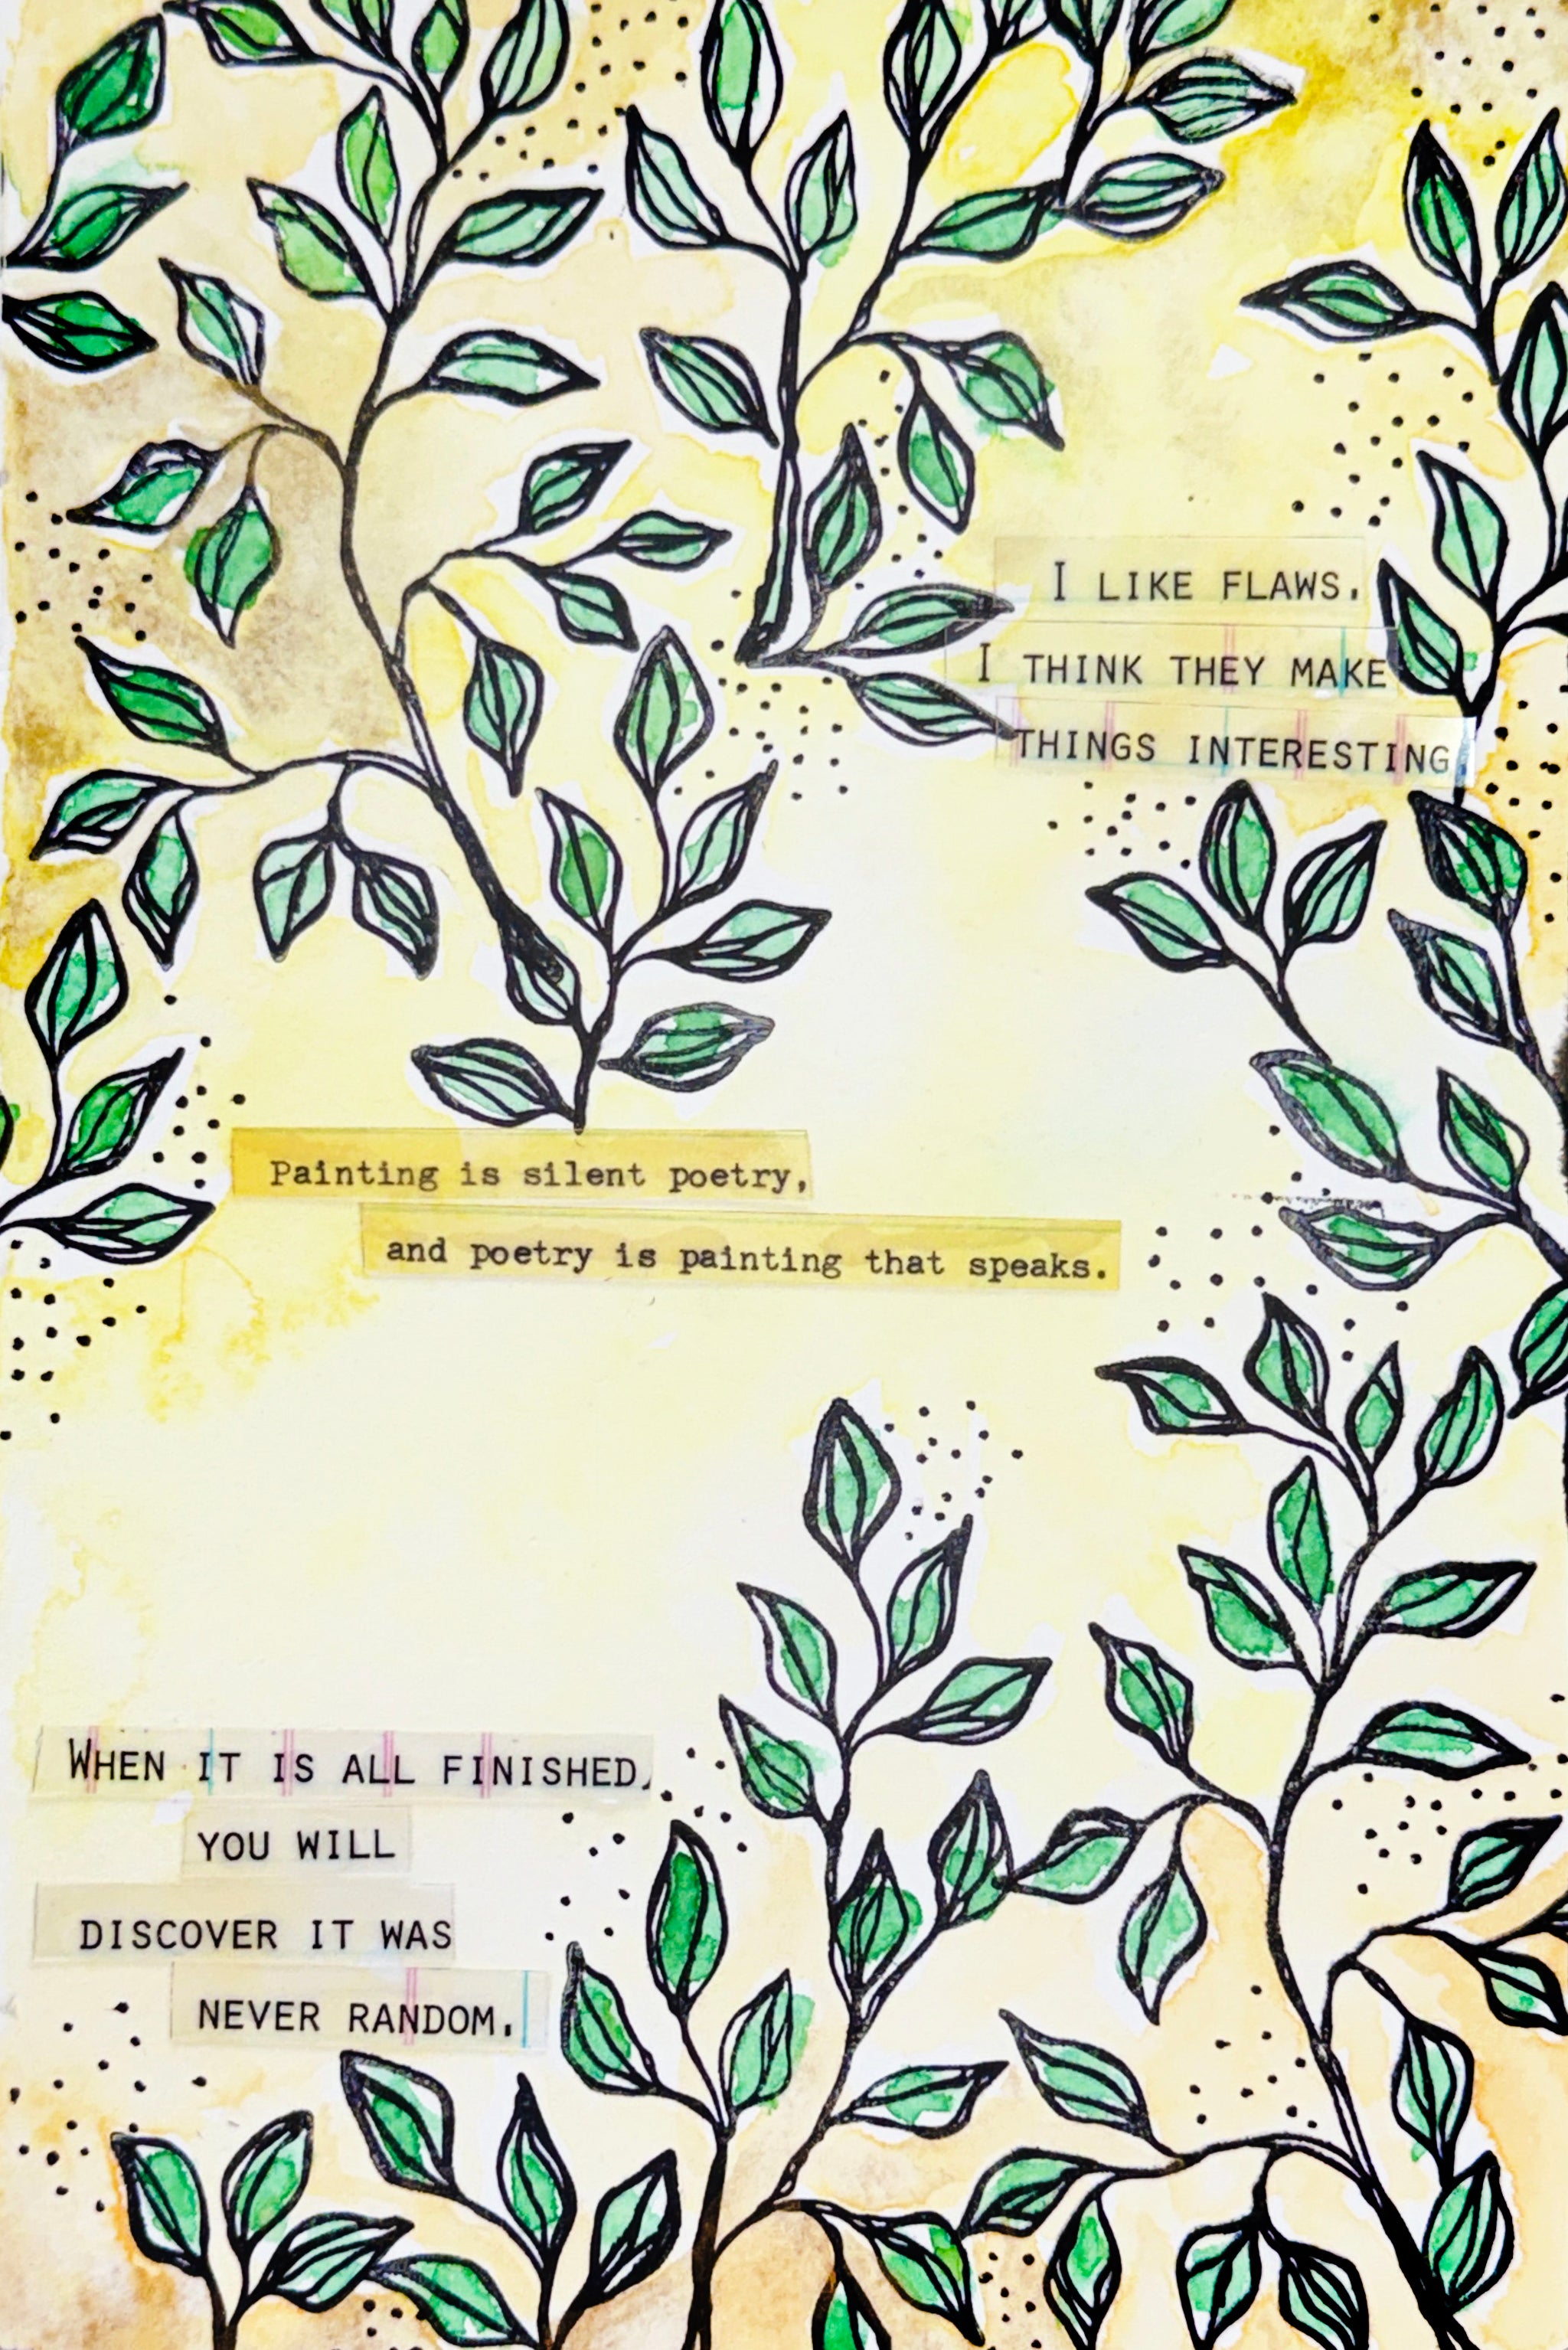 I LIKE FLAWS.
I THINK THEY MAKE
THINGS INTERESTING
Painting is silent poetry,
and poetry is painting that speaks.
WHEN IT IS ALL FINISHED,
YOU WILL
DISCOVER IT WAS
NEVER RANDOM.